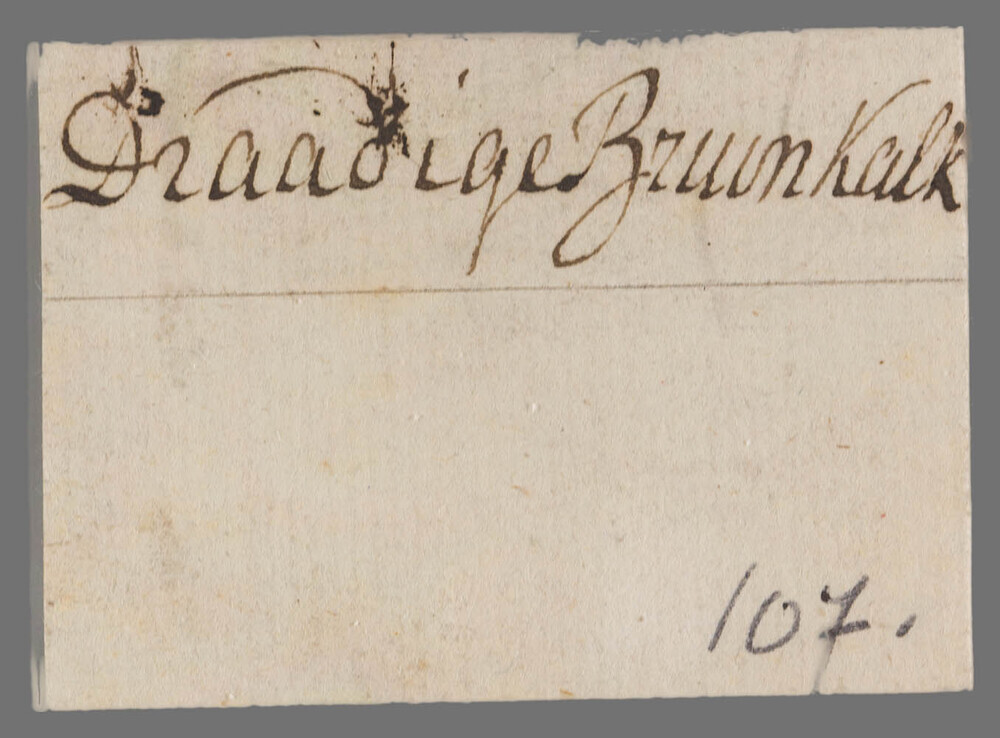 Draadige Bruin kalk
107.